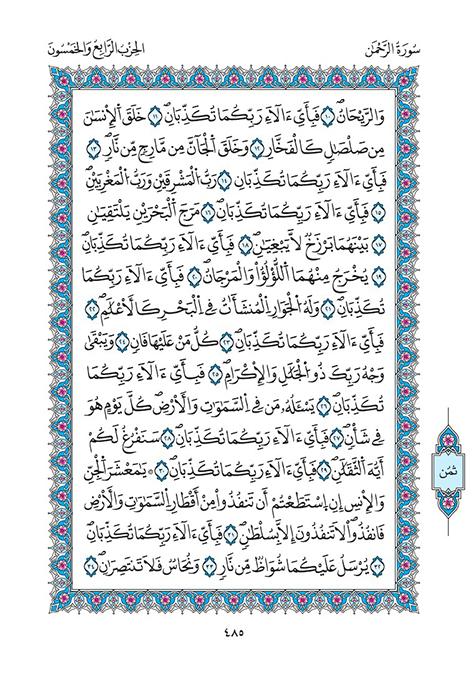 سُورَةُ الرَّحْمَٰن الحِزْبُ الرَّابِعُ وَالخَمْسُونَ
وَالرَّيْحَانُ ١٠ فَبِأَيِّ ءَالَآءِ رَبِّكُمَا تُكَذِّبَانِ ١١ خَلَقَ اَلْإِنسَٰنَ
مِن صَلْصَٰلٍ كَالْفَخّارِ ١٢ وَخَلَقَ اَلْجَآنَّ مِن مَّارِجٍ مِّن نَّارٍ ١٣
فَبِأَيِّ ءَالَآءِ رَبِّكُمَا تُكَذِّبَانِ ١٤ رَبُّ اُلْمَشْرِقَيْنِ وَرَبُّ اُلْمَغْرِبَيْنِ
١٥ فَبِأَيِّ ءَالَآءِ رَبِّكُمَا تُكَذِّبَانِ ١٦ مَرَجَ اَلْبَحْرَيْنِ يَلْتَقِيَٰنِ
١٧ بَيْنَهُمَا بَرْزَخٌ لَّا يَبْغِيَٰنِ ١٨ فَبِأَيِّ ءَالَآءِ رَبِّكُمَا تُكَذِّبَانِ
١٩ يُخْرَجُ مِنْهُمَا اَللُّؤْلُؤُ وَالْمَرْجَانُ ٢٠ فَبِأَيِّ ءَالَآءِ رَبِّكُمَا
تُكَذِّبَانِ ٢١ وَلَهُ اُلْجَوَارِ اِلْمُنشَـَٔاتُ فِي اِلْبَحْرِ كَالْأَعْلَٰمِ ٢٢
فَبِأَيِّ ءَالَآءِ رَبِّكُمَا تُكَذِّبَانِ ٢٣ كُلُّ مَنْ عَلَيْهَا فَانٍ ٢٤ وَيَبْقَىٰ
وَجْهُ رَبِّكَ ذُو اُلْجَلَٰلِ وَالْإِكْرَامِ ٢٥ فَبِأَيِّ ءَالَآءِ رَبِّكُمَا
تُكَذِّبَانِ ٢٦ يَسْـَٔلُهُۥ مَن فِي اِلسَّمَٰوَٰتِ وَالْأَرْضِ كُلَّ يَوْمٍ هُوَ
فِي شَأْنٍ ٢٧ فَبِأَيِّ ءَالَآءِ رَبِّكُمَا تُكَذِّبَانِ ٢٨ سَنَفْرُغُ لَكُمُ
أَيُّهَ اَلثَّقَلَٰنِ ٢٩ فَبِأَيِّ ءَالَآءِ رَبِّكُمَا تُكَذِّبَانِ ٣٠ يَٰمَعْشَرَ اَلْجِنِّ
وَالْإِنسِ إِنِ اِسْتَطَعْتُمُ أَن تَنفُذُوا مِنَ أَقْطَارِ اِلسَّمَٰوَٰتِ وَالْأَرْضِ
فَانفُذُوا لَا تَنفُذُونَ إِلَّا بِسُلْطَٰنٍ ٣١ فَبِأَيِّ ءَالَآءِ رَبِّكُمَا تُكَذِّبَانِ
٣٢ يُرْسَلُ عَلَيْكُمَا شُوَاظٌ مِّن نَّارٍ ٣٣ وَنُحَاسٌ فَلَا تَنتَصِرَٰنِ ٣٤
ثمُن
٤٨٥